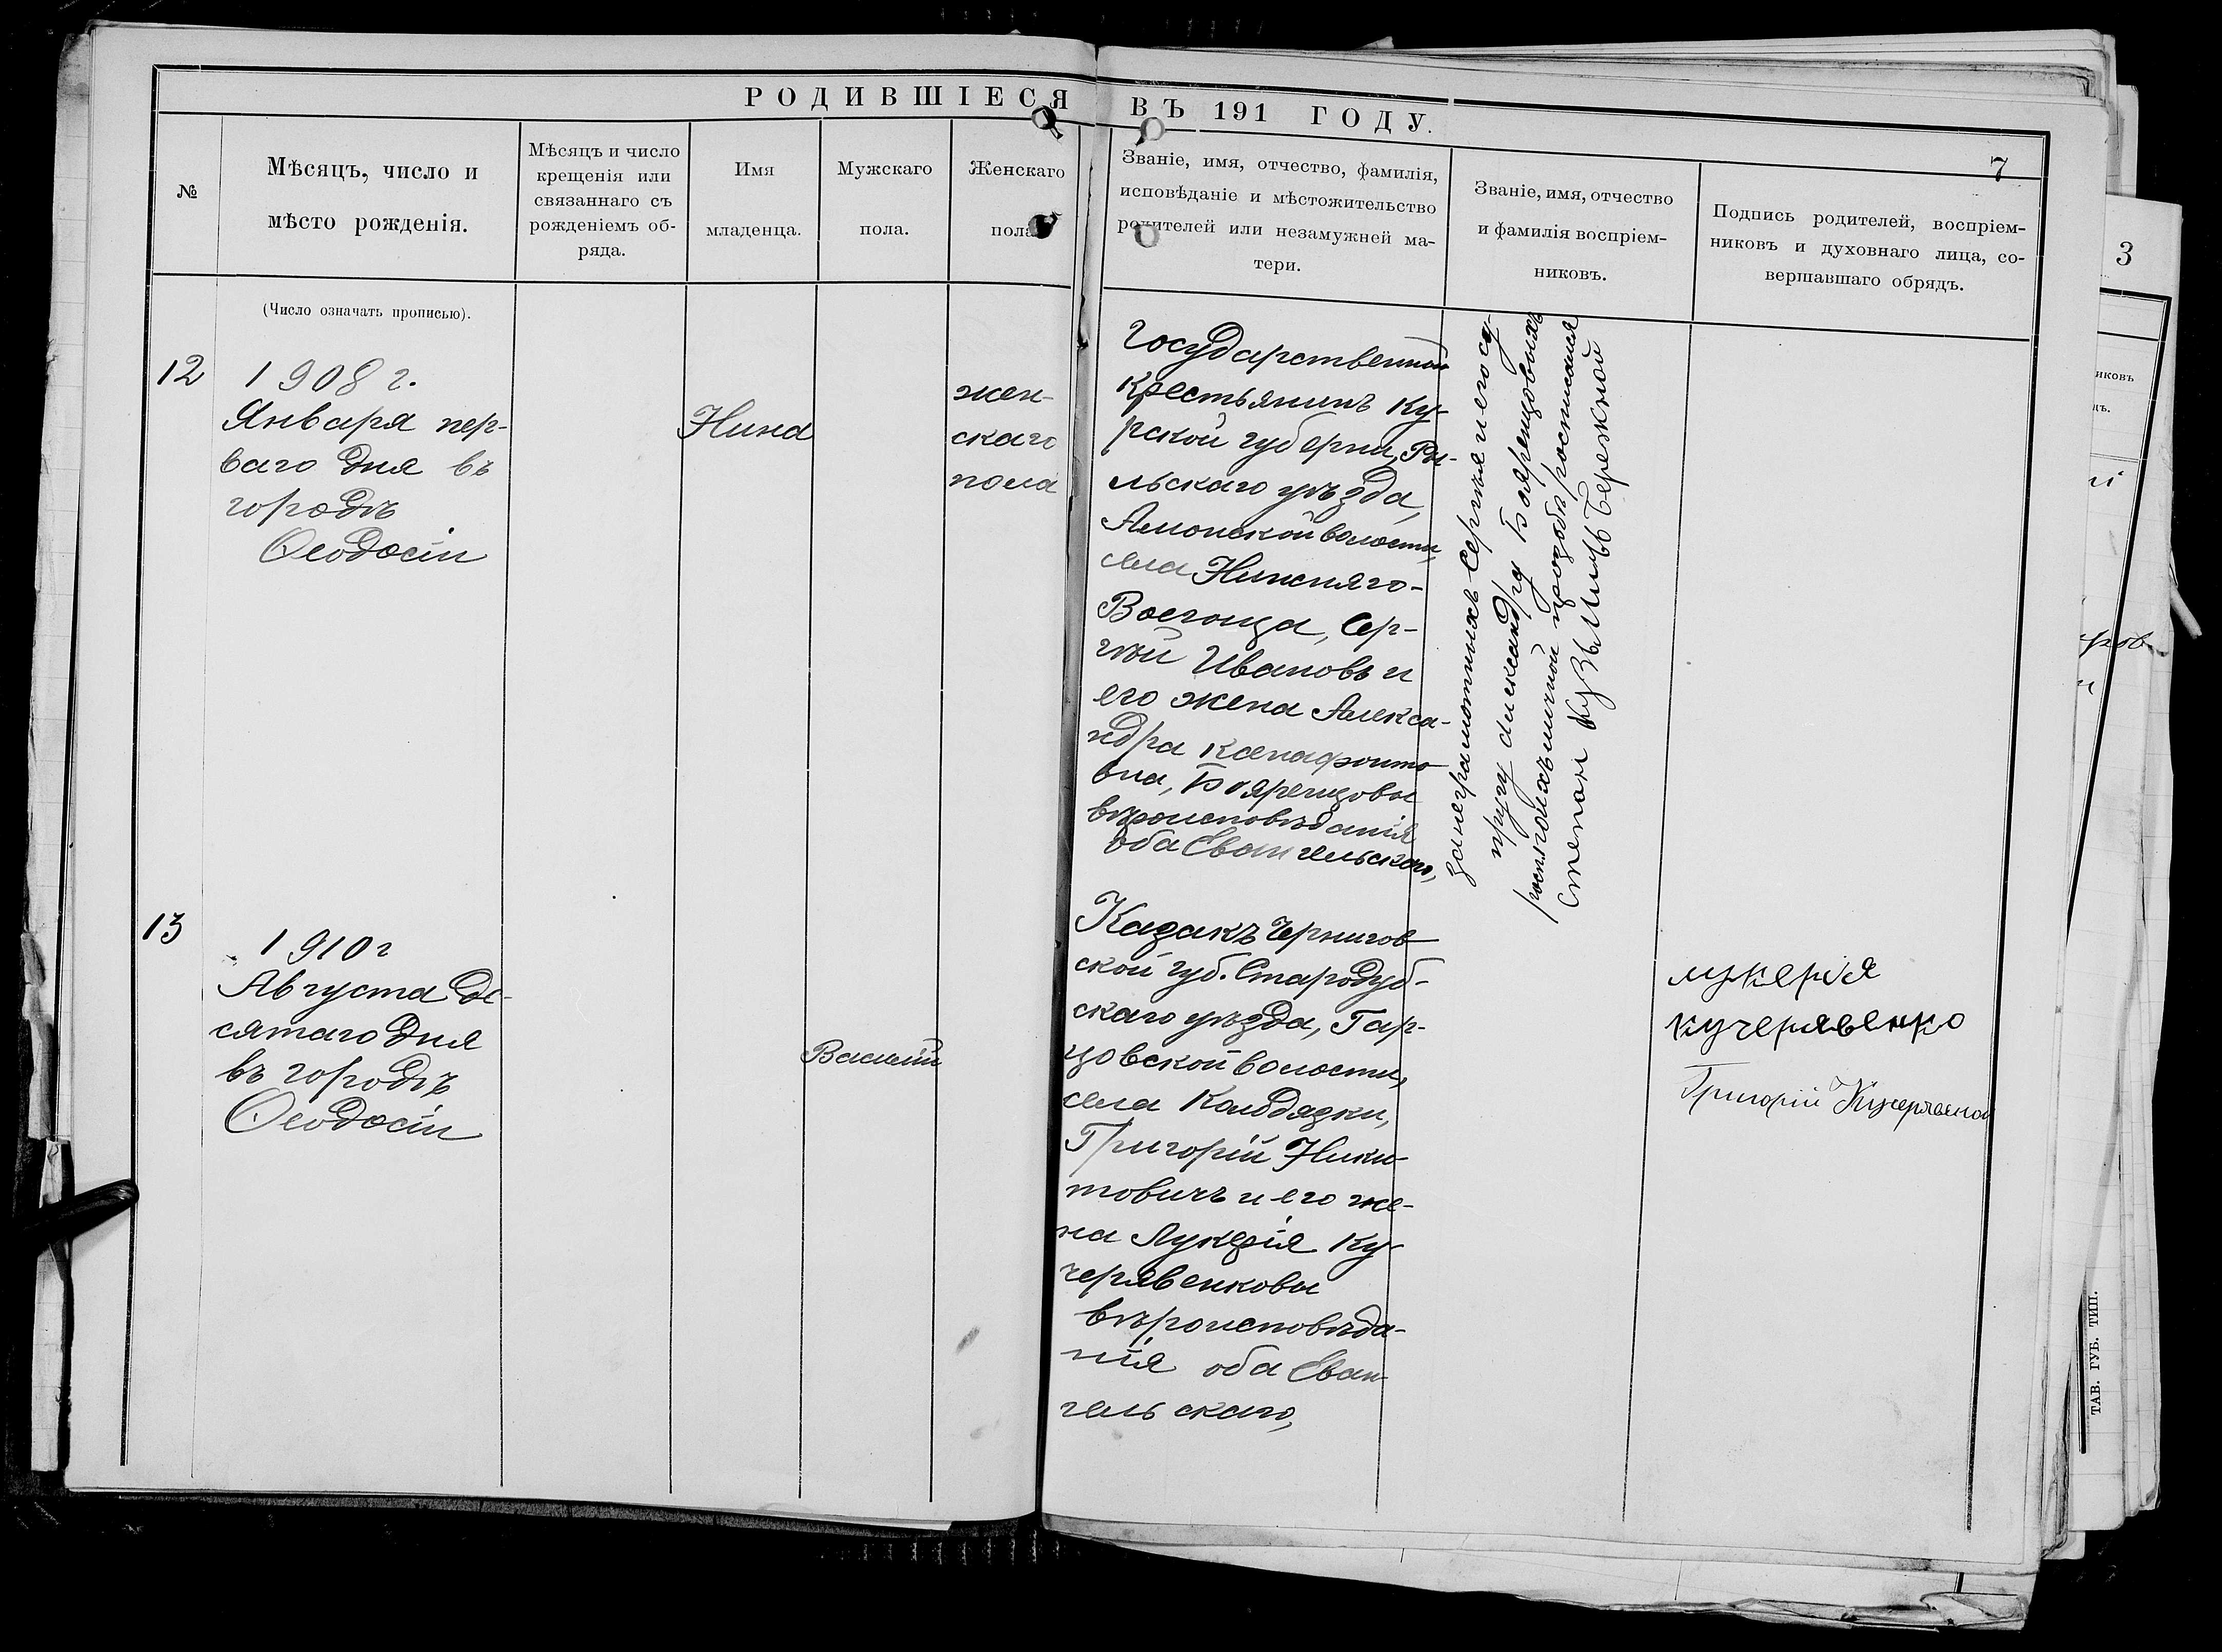 РОДИВШІЕСЯ ВЪ 191 ГОДУ.
7
№
Мѣсяцъ, число и
мѣсто рожденія.
Мѣсяцъ и число
крещенія или
связаннаго съ
рожденіемъ об-
ряда.
Имя
младенца.
Мужскаго
пола.
Женскаго
пола
Званіе, имя, отчество, фамилія,
исповѣданіе и мѣстожительство
родителей или незамужней ма-
тери.
Званіе, имя, отчество
и фамилія воспріем-
никовъ.
Подпись родителей, воспріем-
никовъ и духовнаго лица, со-
вершавшаго обрядъ.
(Число означать прописью).
12
1908 г.
Января пер-
ваго дня въ
городѣ
Ѳеодосіи
Нина
жен-
скаго
пола
Государственной
Крестьянинъ Ку-
рской губерни, Ры-
льскаго уѣзда,
Амонской волости,
села Нижняго-
Воегоща, Сер-
гѣй Ивановъ и
его жена Алекса-
ндра Ксенафонто
вна, Бояренцовы
вѣроисповѣданія
оба Евангельскаго,
за неграмотныхъ Сергѣя и его су-
пругу александру Бояренцовыхъ
по личной прозбѣ росписался
Степанъ Кузьмичъ Бережной
13
1910 г
Августа де-
сятаго дня
въ городѣ
Ѳеодосіи
Василій
Казакъ Чернигов
ской губ. Стародуб-
скаго уѣзда, Гар-
цовской волости,
села
Григорій Ники-
товичъ и его же-
на Лукерія Ку-
черявенковы
вѣроисповѣда-
нія оба Еван-
гельскаго,
лукерія
кучерявенко
Григорій
3
никовъ
ТАВ. ГУБ. ТИП.